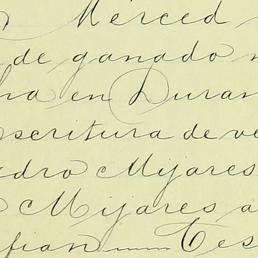 Merced
de ganado
en Duran
scritura de ve
dro Mijares
Mijares a
fian Tes